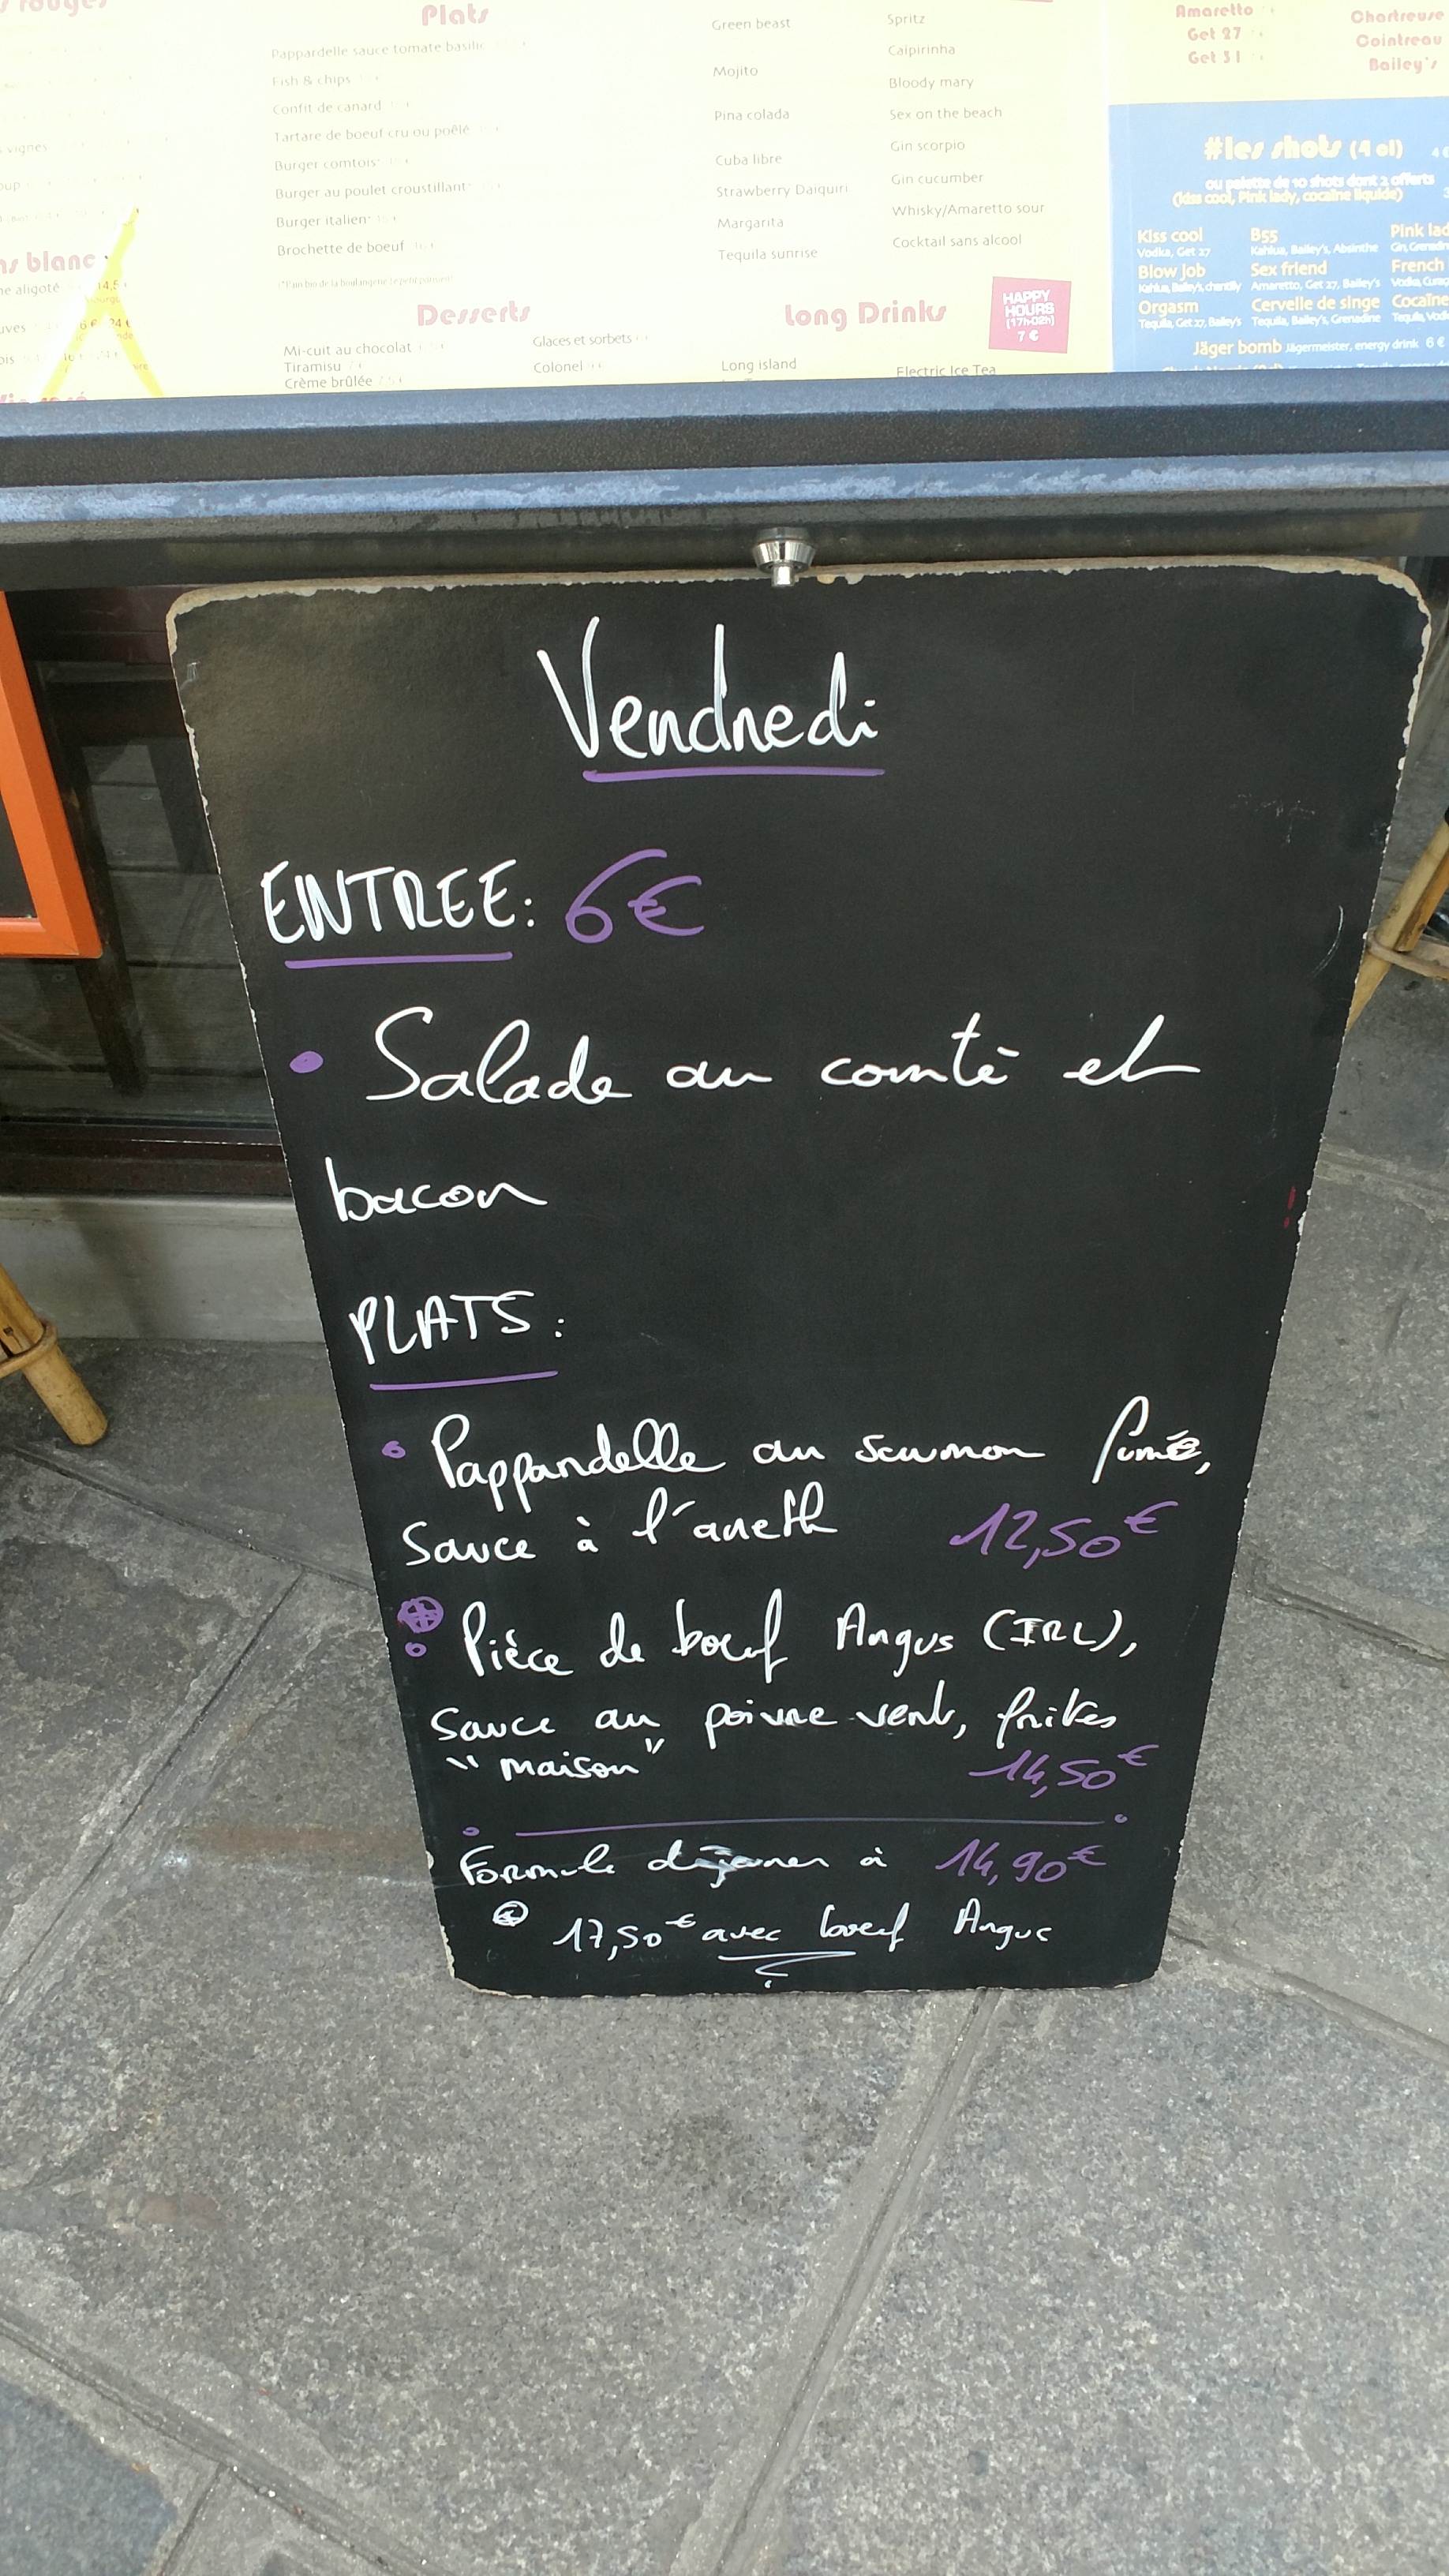 rouges
vignes
Plats
Pappardelle sauce tomate basilic
Fish & chips
Confit de canard
Tartare de boeuf cru ou poêlé
Burger comtois*
Burger au poulet croustillant*
Burger italien*
Brochette de boeuf
Desserts
Mi-cuit au chocolat
Tiramisu
Crème brûlée
Glaces et sorbets
Colonel
blanc
aligoté
Green beast
Mojito
Pina colada
Cuba libre
Strawberry Daiquiri
Margarita
Tequila sunrise
Spritz
Caipirinha
Bloody mary
Sex on the beach
Gin scorpio
Gin cucumber
Whisky/Amaretto sour
Cocktail sans alcool
Long Drinks
HAPPY
HOURS
(17h-02h)
7 €
Long island
Electric Ice Tea
Amaretto
Get 27
Get 31
Chartreuse
Cointreau
Bailey's
#les shots (4 cl)
ou palette de 10 shots dont 2 offerts
(kiss cool, Pink lady, cocaïne liquide)
Kiss cool
Vodka, Get 27
Blow job
Kahlua, Bailey's, chantilly
Orgasm
Tequila, Get 27, Bailey's
B55
Kahlua, Bailey's, Absinthe
Sex friend
Amaretto, Get 27, Bailey's
Cervelle de singe
Tequila, Bailey's, Grenadine
Pink lad
French
Cocaïne
Jäger bomb Jägermeister, energy drink 6 €
Vendredi
ENTREE: 6€
• Salade au comté et
bacon
PLATS:
• Pappardelle au saumon fumé,
sauce à l'aneth 12,50€
• Pièce de boeuf Angus (IRL),
sauce au poivre vert, frites
"maison" 14,50€
Formule déjeuner à 14,90€
17,50€ avec boeuf Angus